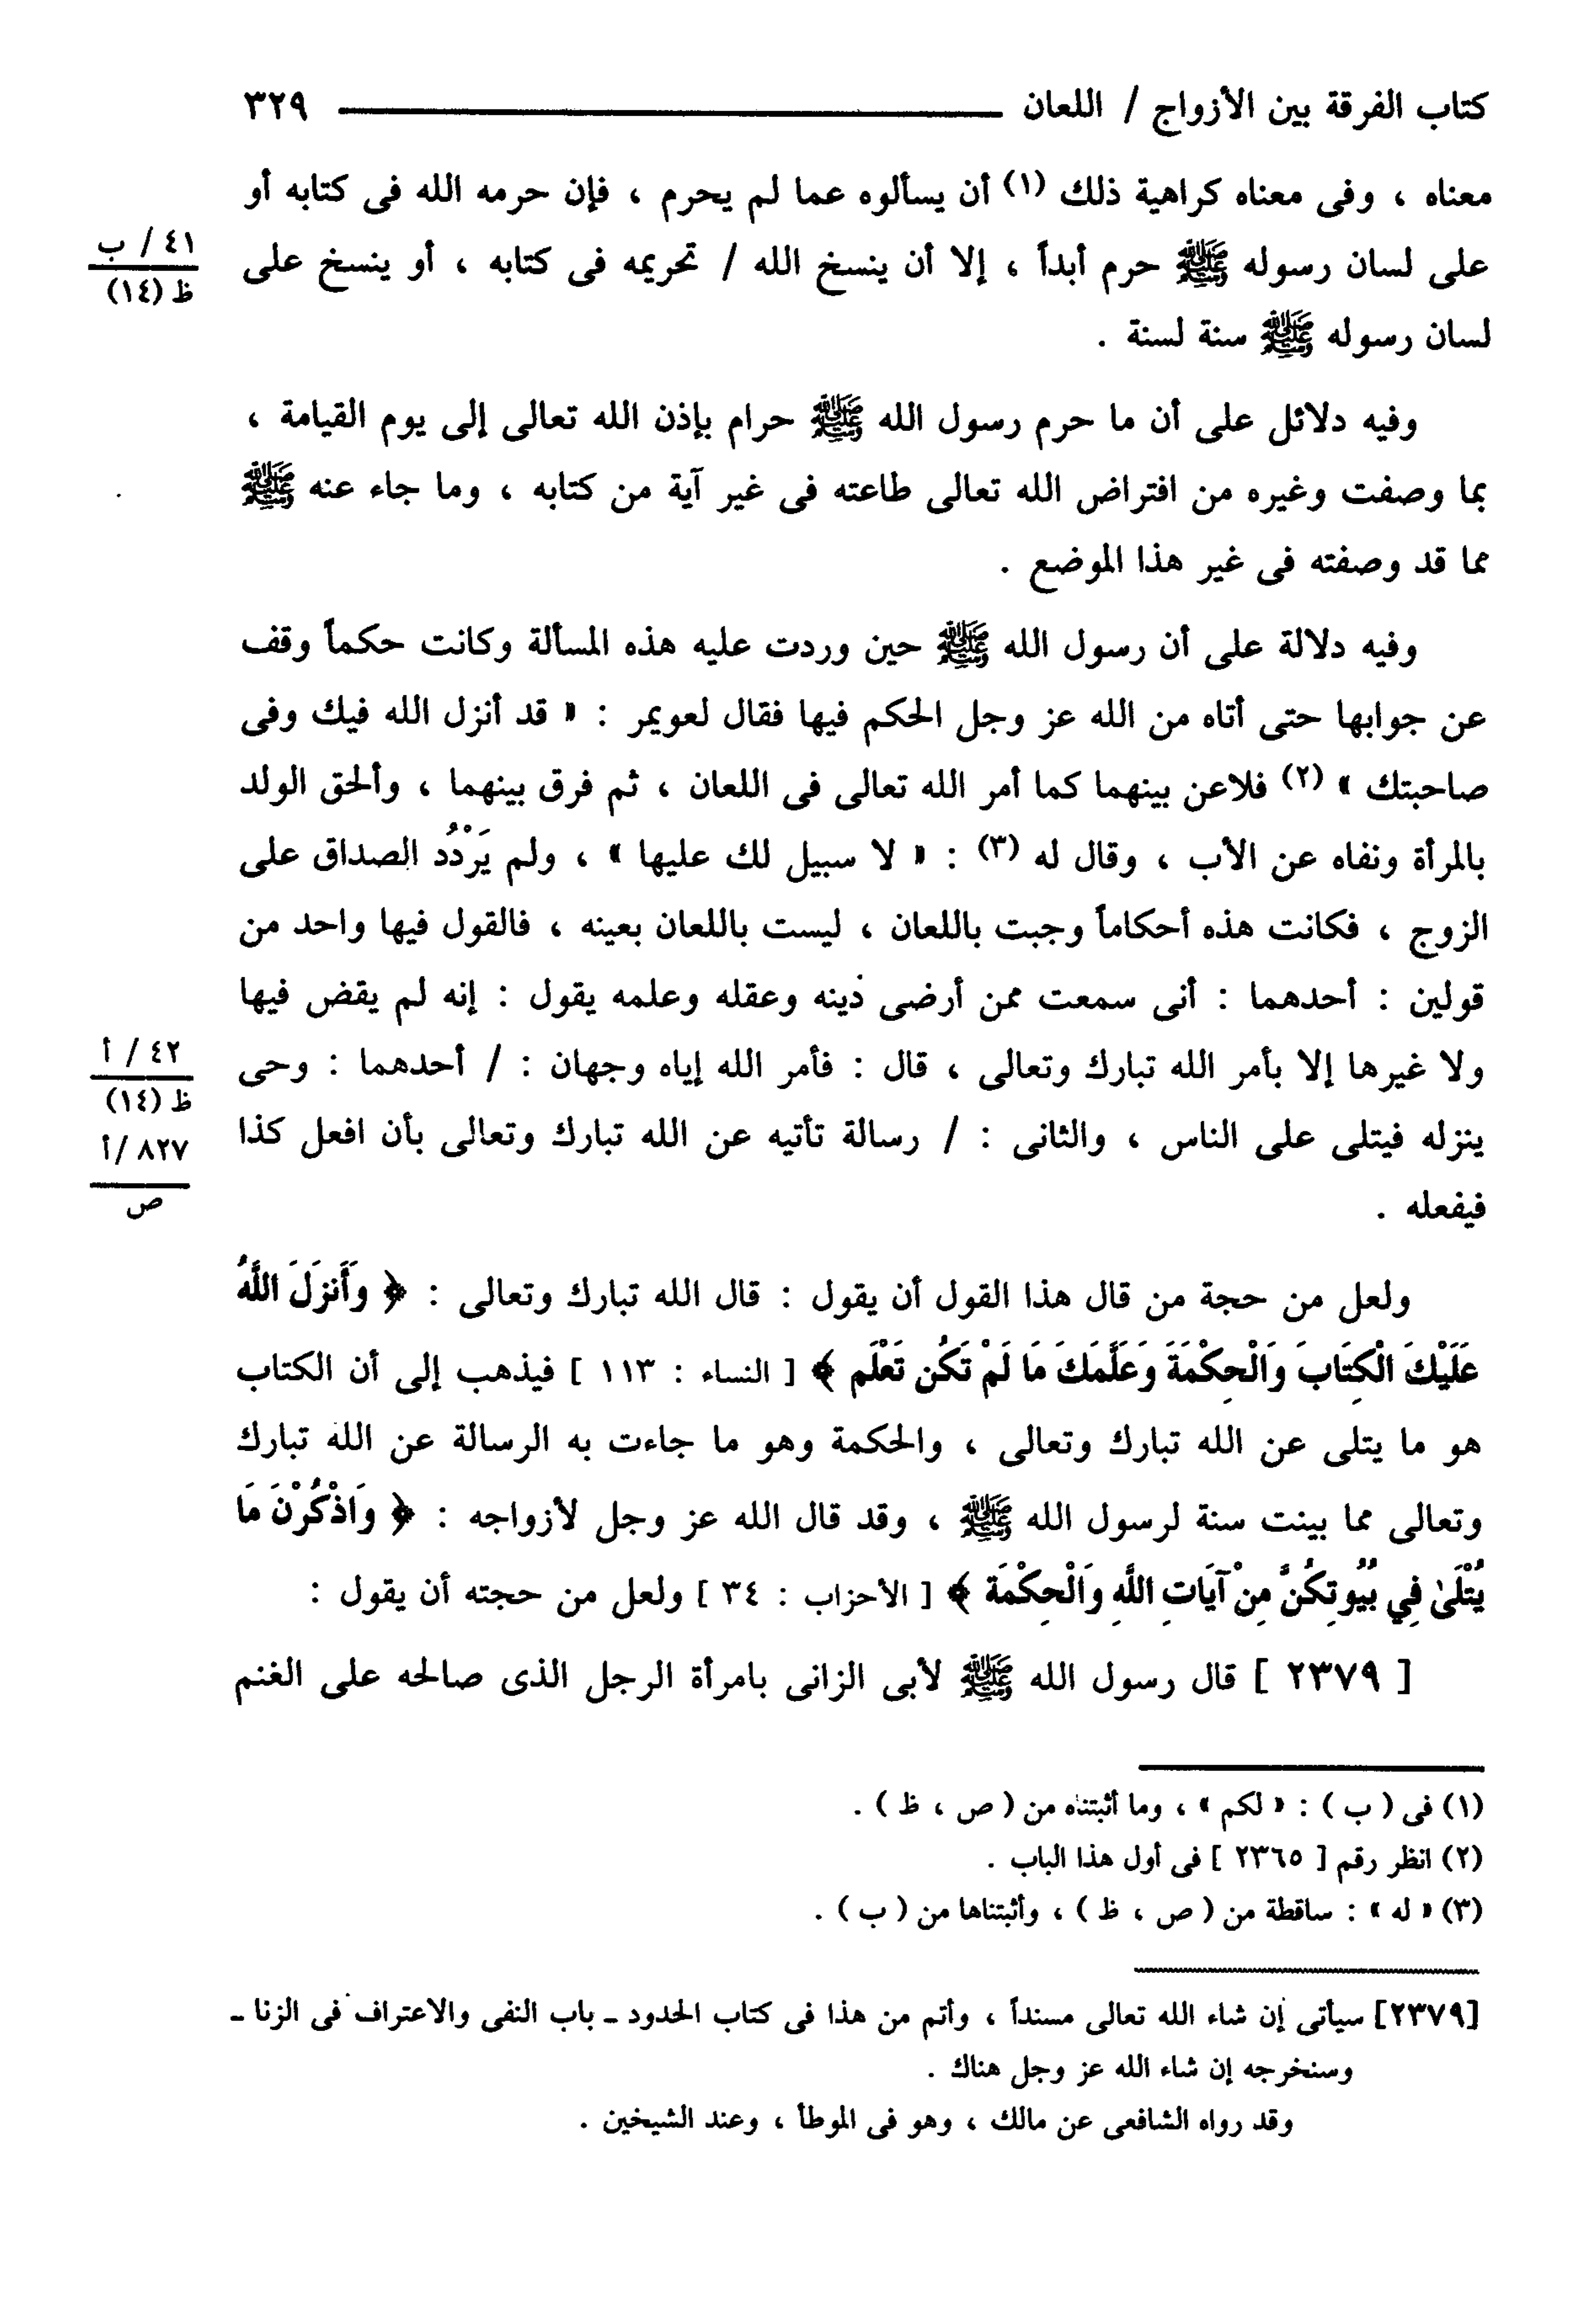 كتاب الفرقة بين الأزواج / اللعان ــــــــــــــــ ٣٢٩
معناه ، وفى معناه كراهية ذلك (١) أن يسألوه عما لم يحرم ، فإن حرمه الله فى كتابه أو
على لسان رسوله ﷺ حرم أبداً ، إلا أن ينسخ الله / تحريمه فى كتابه ، أو ينسخ على
٤١ / ب
ظ (١٤)
لسان رسوله ﷺ سنة لسنة .
وفيه دلائل على أن ما حرم رسول الله ﷺ حرام بإذن الله تعالى إلى يوم القيامة ،
بما وصفت وغيره من افتراض الله تعالى طاعته فى غير آية من كتابه ، وما جاء عنه ﷺ
مما قد وصفته فى غير هذا الموضع .
وفيه دلالة على أن رسول الله ﷺ حين وردت عليه هذه المسألة وكانت حكماً وقف
عن جوابها حتى أتاه من الله عز وجل الحكم فيها فقال لعويمر : « قد أنزل الله فيك وفى
صاحبتك » (٢) فلاعن بينهما كما أمر الله تعالى فى اللعان ، ثم فرق بينهما ، وألحق الولد
بالمرأة ونفاه عن الأب ، وقال له (٣) : « لا سبيل لك عليها » ، ولم يَرْدُد الصداق على
الزوج ، فكانت هذه أحكاماً وجبت باللعان ، ليست باللعان بعينه ، فالقول فيها واحد من
قولين : أحدهما : أنى سمعت ممن أرضى دينه وعقله وعلمه يقول : إنه لم يقض فيها
ولا غيرها إلا بأمر الله تبارك وتعالى ، قال : فأمر الله إياه وجهان : / أحدهما : وحى
٤٢ / أ
ظ (١٤)
ينزله فيتلى على الناس ، والثانى : / رسالة تأتيه عن الله تبارك وتعالى بأن افعل كذا
٨٢٧ /أ
ص
فيفعله .
ولعل من حجة من قال هذا القول أن يقول : قال الله تبارك وتعالى : ﴿ وَأَنزَلَ اللَّهُ
عَلَيْكَ الْكِتَابَ وَالْحِكْمَةَ وَعَلَّمَكَ مَا لَمْ تَكُن تَعْلَم ﴾ [ النساء : ١١٣ ] فيذهب إلى أن الكتاب
هو ما يتلى عن الله تبارك وتعالى ، والحكمة وهو ما جاءت به الرسالة عن الله تبارك
وتعالى مما بينت سنة لرسول الله ﷺ ، وقد قال الله عز وجل لأزواجه : ﴿ وَاذْكُرْنَ مَا
يُتْلَىٰ فِي بُيُوتِكُنَّ مِنْ آيَاتِ اللَّهِ وَالْحِكْمَة ﴾ [ الأحزاب : ٣٤ ] ولعل من حجته أن يقول :
[ ٢٣٧٩ ] قال رسول الله ﷺ لأبى الزانى بامرأة الرجل الذى صالحه على الغنم
(١) فى ( ب ) : « لكم » ، وما أثبتناه من ( ص ، ظ ) .
(٢) انظر رقم [ ٢٣٦٥ ] فى أول هذا الباب .
(٣) « له » : ساقطة من ( ص ، ظ ) ، وأثبتناها من ( ب ) .
[٢٣٧٩] سيأتى إن شاء الله تعالى مسنداً ، وأتم من هذا فى كتاب الحدود ـ باب النفى والاعتراف فى الزنا ـ
وسنخرجه إن شاء الله عز وجل هناك .
وقد رواه الشافعى عن مالك ، وهو فى الموطأ ، وعند الشيخين .